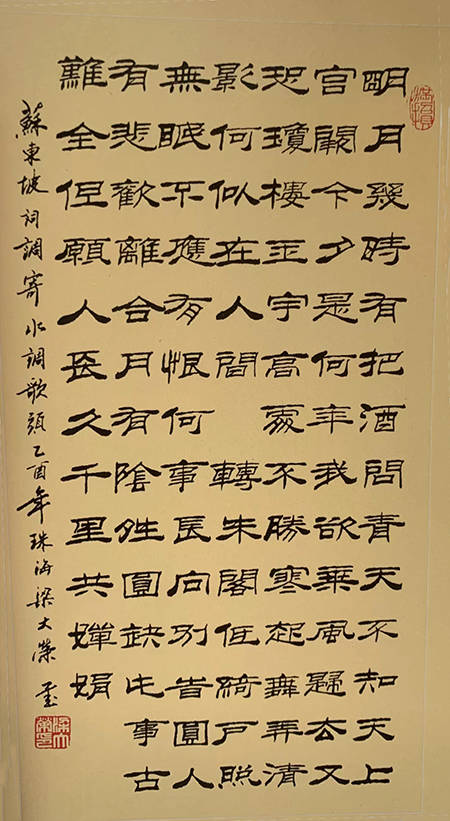 明月幾時有把酒問青天不知天上
宮闕今夕是何年我欲乘風歸去又
恐瓊樓玉宇高處不勝寒起舞弄清
影何似在人間 轉朱閣低綺戶照
無眠不應有恨何事長向別旹圓人
有悲歡離合月有陰暒圓缺此事古
難全但願人長久千里共嬋娟
蘇東坡詞調寄水調歌頭乙酉年珠海梁大榮書